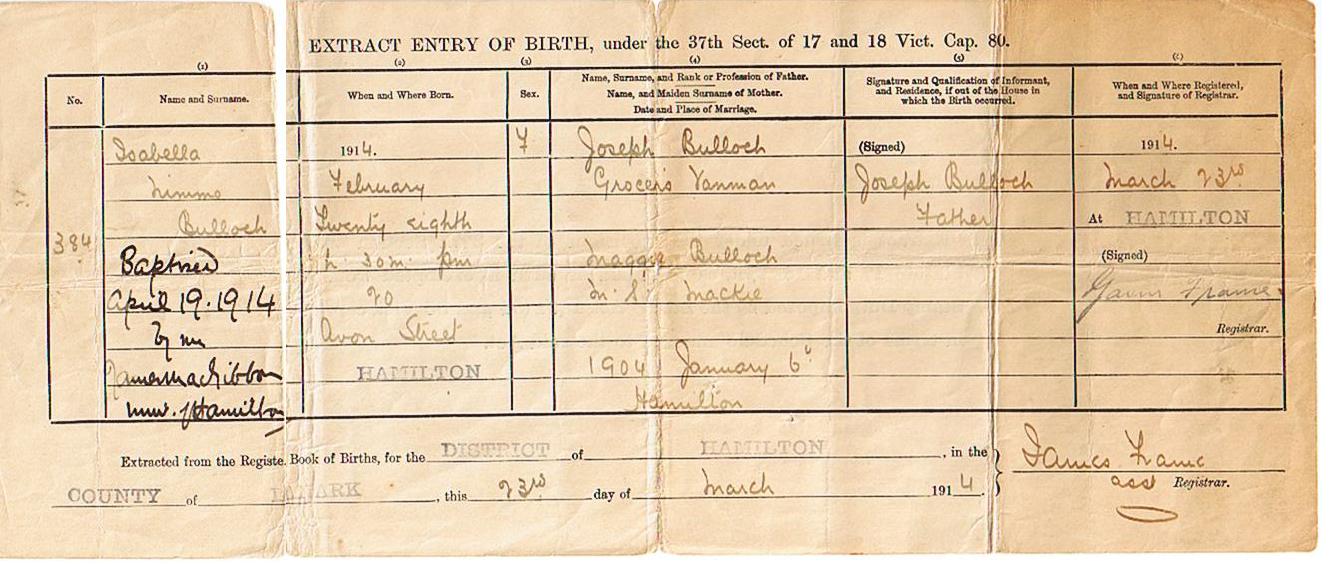 EXTRACT ENTRY OF BIRTH, under the 37th Sect. of 17 and 18 Vict. Cap. 80.
(1) (2) (3) (4) (5)
No.
Name and Surname.
When and Where Born.
Sex.
Name, Surname, and Rank or Profession of Father.
Name, and Maiden Surname of Mother.
Date and Place of Marriage.
Signature and Qualification of Informant,
and Residence, if out of the House in
which the Birth occurred.
When and Where Registered,
and Signature of Registrar.
384
Isabella
Nimmo
Bulloch
Baptised
April 19. 1914
by me
James MacGibbon
Hamilton
1914.
February
Twenty eighth
30m. pm
20
Avon Street
HAMILTON
F
Joseph Bulloch
Grocer's Vanman
Maggie Bulloch
M.S. Mackie
1904 January 6
Hamilton
(Signed)
Joseph Bulloch
Father
1914.
March 23rd
At HAMILTON
(Signed)
Gavin Frame
Registrar.
Extracted from the Registe Book of Births, for the DISTRICT of HAMILTON, in the
COUNTY of LANARK, this 23rd day of March 1914.
James Frame
asst Registrar.